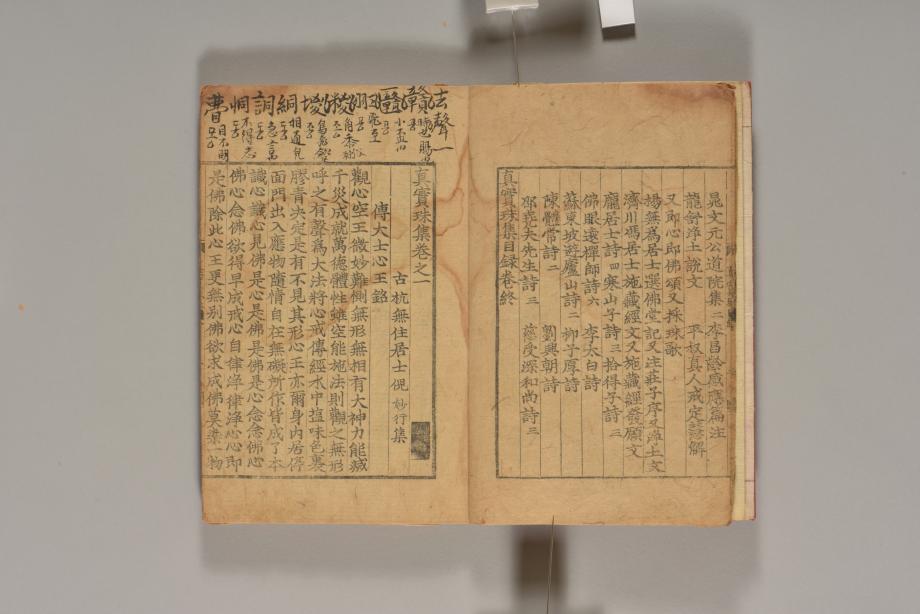 晁文元公道院集二 李昌齡感應篇注
龍舒淨土說文 平叔真人戒定慧解
又即心即佛頌又採珠歌
楊無爲居士選佛堂記又注莊子序又淨土文
濟川馮居士施藏經文又施藏經發願文
龐居士詩四寒山子詩三拾得子詩三
佛眼遠禪師詩六 李太白詩
蘇東坡遊廬山詩二 柳子厚詩
陳體常詩二 劉興朝詩
邵堯夫先生詩三 慈受深和尚詩三
真實珠集目錄卷終
法聲一
真實珠集卷之一
古杭無住居士倪 妙行集
傅大士心王銘
觀心空王微妙難惻無形無相有大神力能滅
千災成就萬德體性雖空能施法則觀之無形
呼之有聲爲大法將心戒傳經水中塩味色裏
膠青決定是有不見其形心王亦爾身內居停
面門出入應物隨情自在無礙所作皆成了本
識心識心見佛是心是佛是佛是心念念佛心
佛心念佛欲得早成戒心自律淨律淨心心即
是佛除此心王更無別佛欲求成佛莫染一物